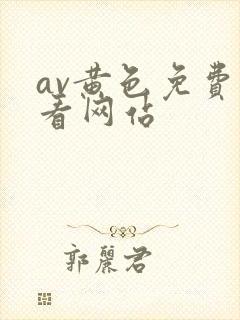 av黄色免費
看网佔
郭麗君